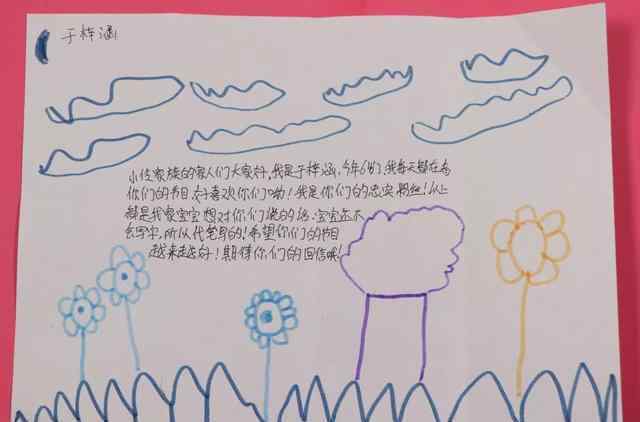 于梓涵
小伶家族的家人们大家好,我是于梓涵,今年6岁,我每天都在看
你们的节目,好喜欢你们呦!我是你们的忠实粉丝!以上
都是我家宝宝想对你们说的话,宝宝还不
会写字,所以代笔写的!希望你们的节目
越来越好!期待你们的回信呦!